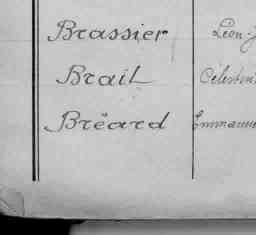 Brassier Léon-J
Brail Célestin
Bréard Emmanue